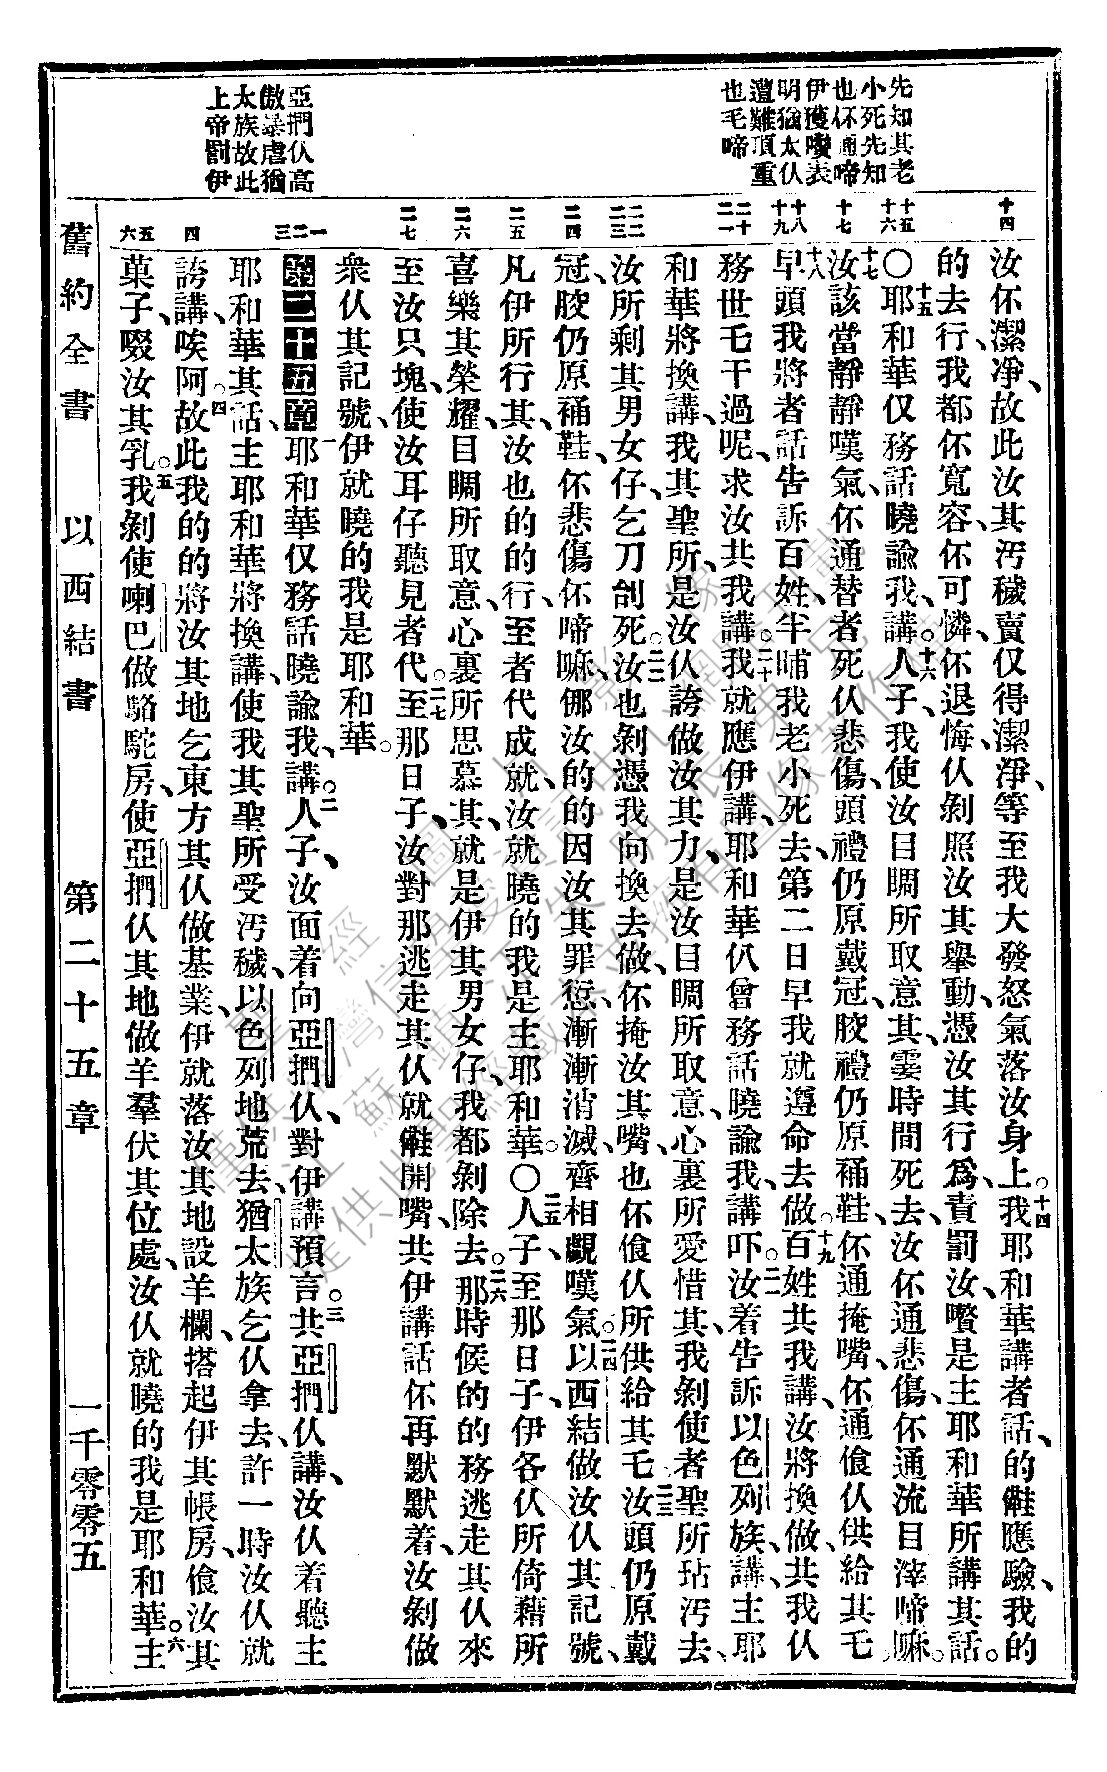 先知其老
小死先知
也伓通啼
伊獲嚽表
明猶太仈
遭難頂重
也毛啼
亞捫仈高
傲暴虐猶
太族故此
上帝罰伊
十四
十五
十六
十七
十八
十九
二十
二一
二二
二三
二四
二五
二六
二七
一
二
三
四
五
六
汝伓潔凈、故此汝其汚穢賣仅得潔淨、等至我大發怒氣落汝身上。十四我耶和華講者話、的𣍐應驗、我的
的去行、我都伓寬容、伓可憐、伓退悔、仈剝照汝其舉動、憑汝其行爲、責罰汝、嚽是主耶和華所講其話。
〇十五耶和華仅務話曉諭我、講。十六人子、我使汝目睭所取意其、霎時間死去、汝伓通悲傷、伓通流目滓啼嘛。
十七汝該當靜靜嘆氣、伓通替者死仈悲傷、頭禮仍原戴冠、骹禮仍原𥙷鞋、伓通掩嘴、伓通飡仈供給其乇
十八早頭我將者話告訴百姓、半晡我老小死去、第二日早我就遵命去做。十九百姓共我講、汝將換做、共我仈
務世乇干過呢、求汝共我講。二十我就應伊講、耶和華仈曾務話曉諭我、講吓。二一汝着告訴以色列族、講、主耶
和華將換講、我其聖所、是汝仈誇做汝其力、是汝目睭所取意、心裏所愛惜其、我剝使者聖所玷汚去、
汝所剩其男女仔、乞刀刣死。二二汝也剝憑我向換去做、伓掩汝其嘴、也伓飡仈所供給其乇、二三汝頭仍原戴
冠、骹仍原𥙷鞋、伓悲傷、伓啼嘛、㑚汝的的因汝其罪愆、漸漸消滅、齊相覷嘆氣。二四以西結做汝仈其記號、
凡伊所行其、汝也的的行、至者代成就、汝就曉的我是主耶和華。〇二五人子、至那日子、伊各仈所倚藉所
喜樂其榮耀、目睭所取意、心裏所思慕其、就是伊其男女仔、我都剝除去。二六那時候的的務逃走其仈來
至汝只塊、使汝耳仔聽見者代。二七至那日子、汝對那逃走其仈就𣍐開嘴、共伊講話、伓再默默着、汝剝做
衆仈其記號、伊就曉的我是耶和華。
第二十五章 一耶和華仅務話曉諭我、講。二人子、汝面着向亞捫仈、對伊講預言。三共亞捫仈講、汝仈着聽主
耶和華其話、主耶和華將換講、使我其聖所受汚穢、以色列地荒去、猶太族乞仈拿去、許一時汝仈就
誇講、唉阿。四故此我的的將汝其地乞東方其仈做基業、伊就落汝其地設羊欄、搭起伊其帳房、飡汝其
菓子、啜汝其乳。五我剝使喇巴做駱駝房、使亞捫仈其地做羊羣伏其位處、汝仈就曉的我是耶和華。六主
舊約全書 以西結書 第二十五章 一千零零五